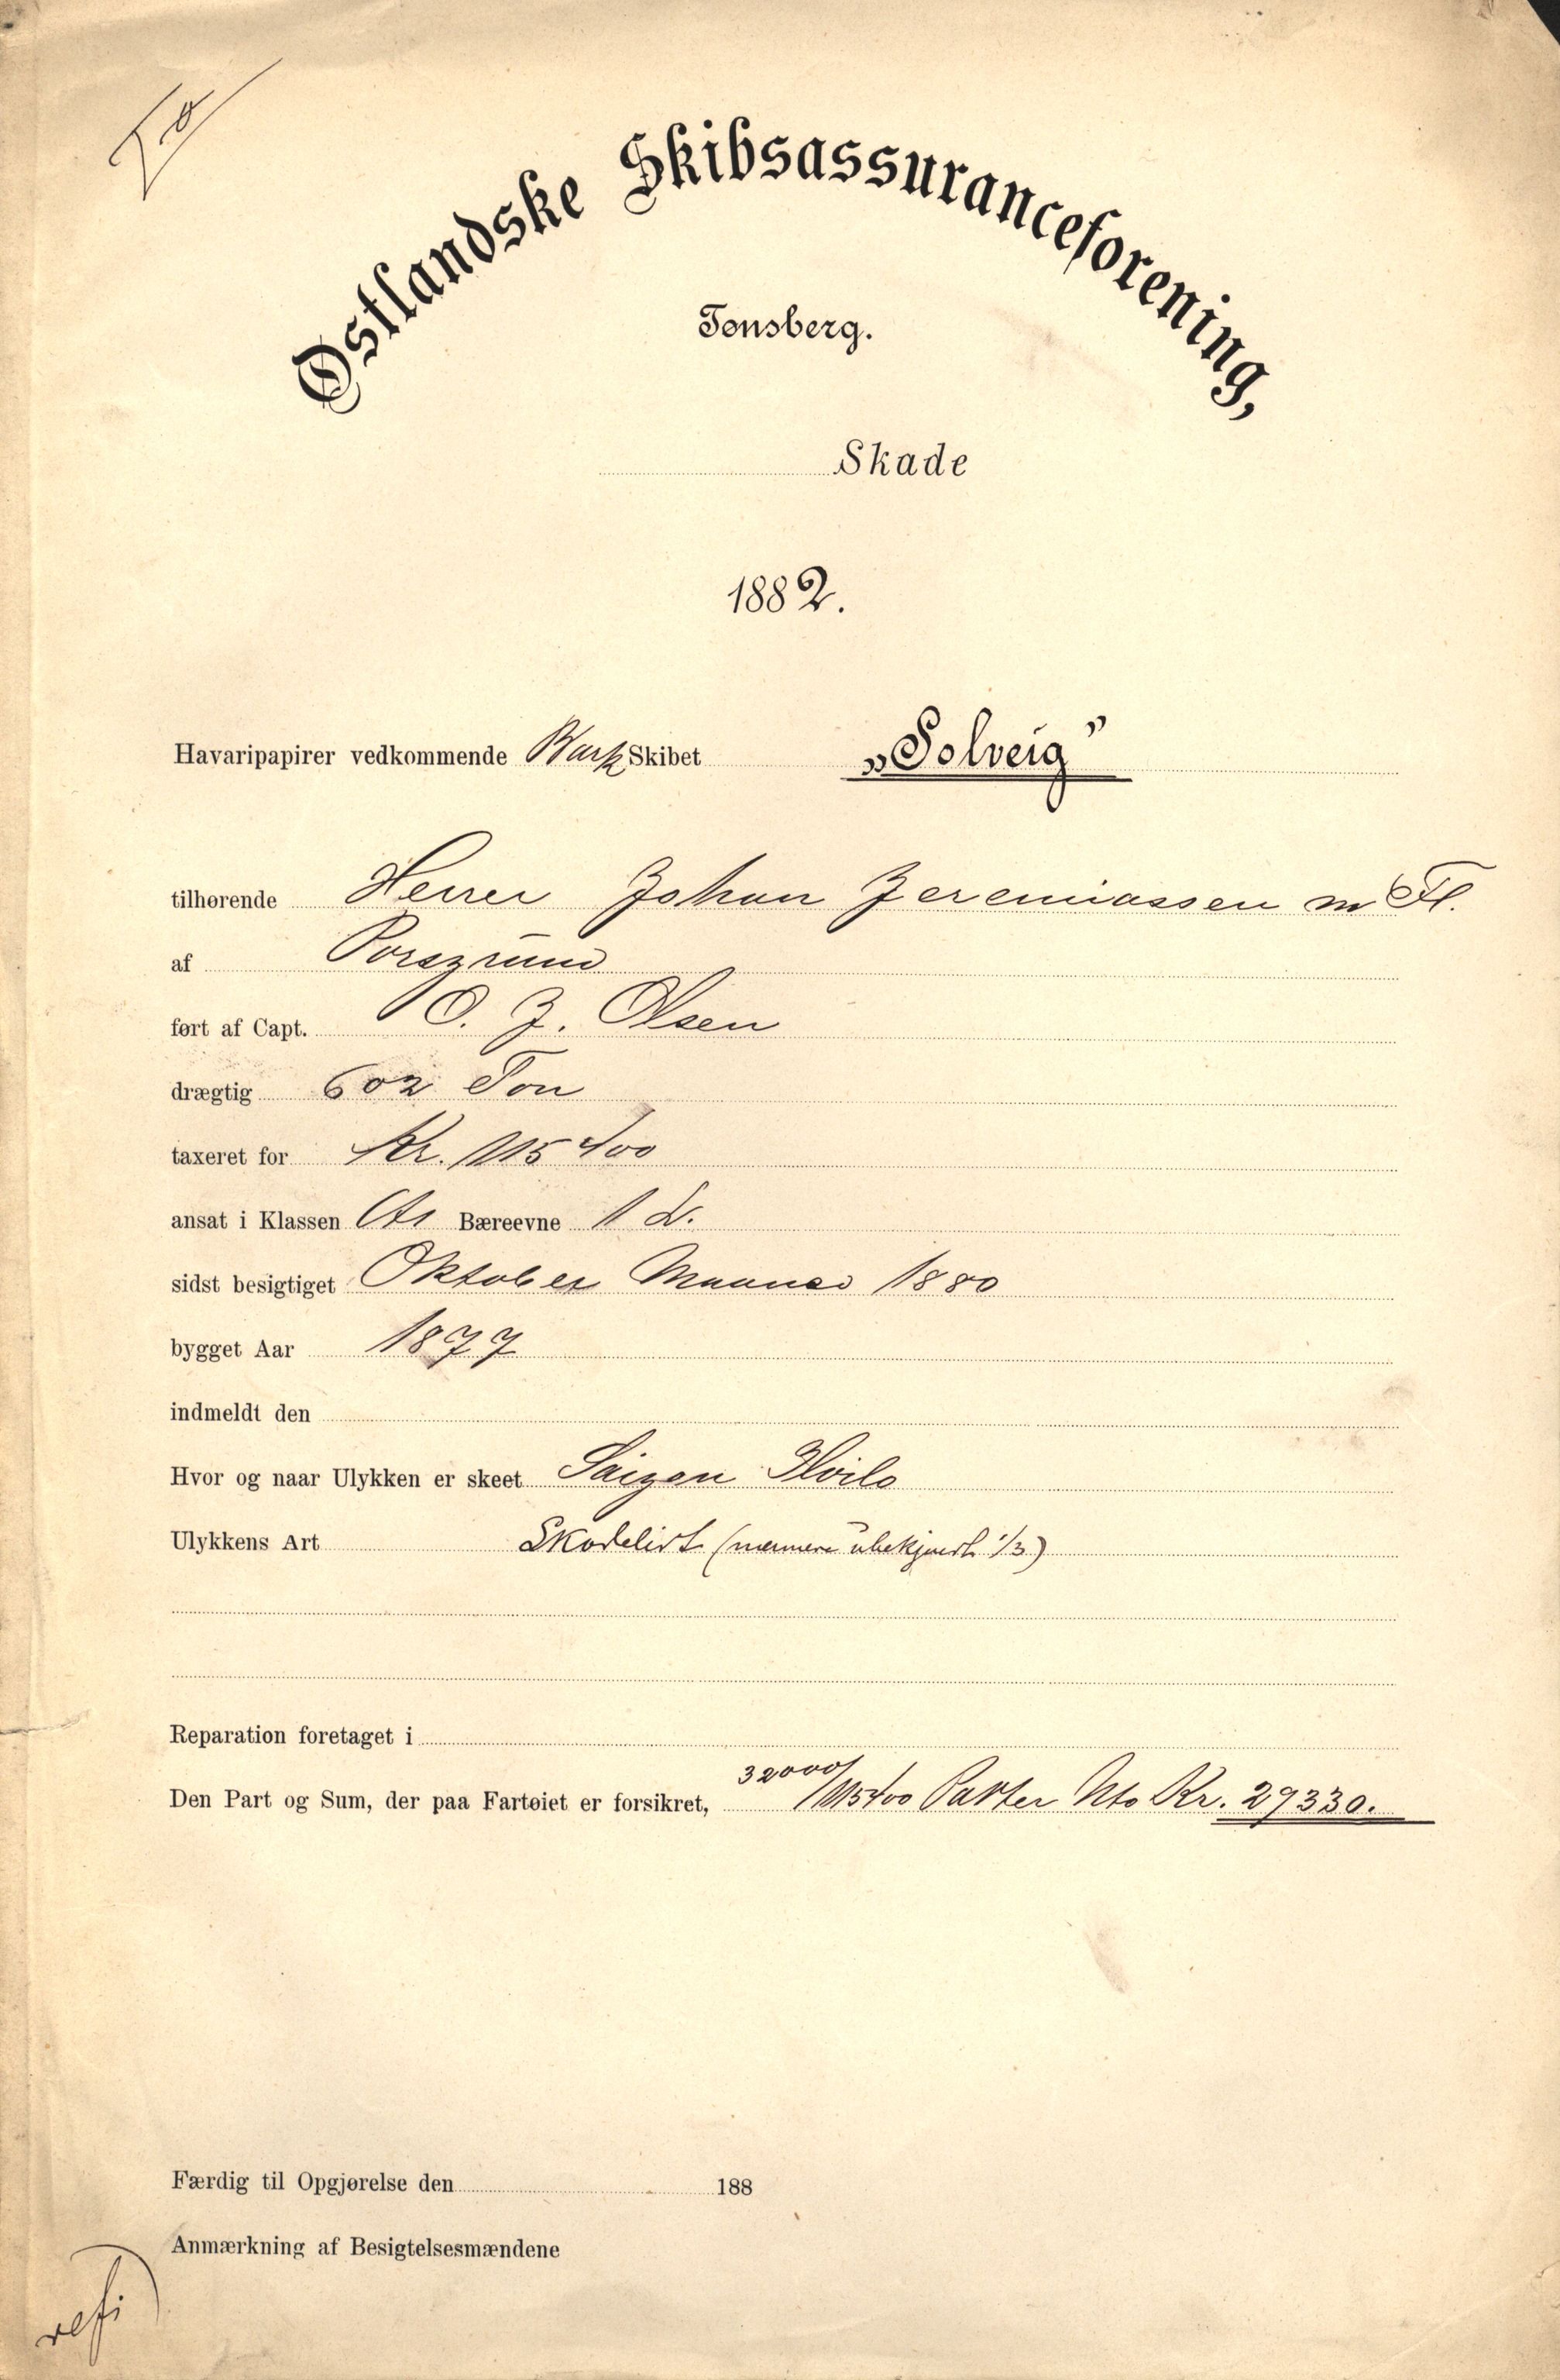 Østlandske Skibsassuranceforening,
Tønsberg.
Skade
1882.
Havaripapirer vedkommende Bark Skibet „Solveig”
tilhørende Herrer Johan Jeremiassen m Fl.
af Porsgrund
ført af Capt. O. J. Olsen
drægtig 602 Ton
taxeret for Kr. 115400
ansat i Klassen A1 Bæreevne 1 d.
sidst besigtiget Oktober Maaned 1880
bygget Aar 1877
indmeldt den
Hvor og naar Ulykken er skeet Saigon
Ulykkens Art Skadelidt (nærmere ubekjendt 1/3)
Reparation foretaget i
Den Part og Sum, der paa Fartøiet er forsikret, 32000/115400 Parter Nto Kr. 29330.
Færdig til Opgjørelse den 188
Anmærkning af Besigtelsesmændene